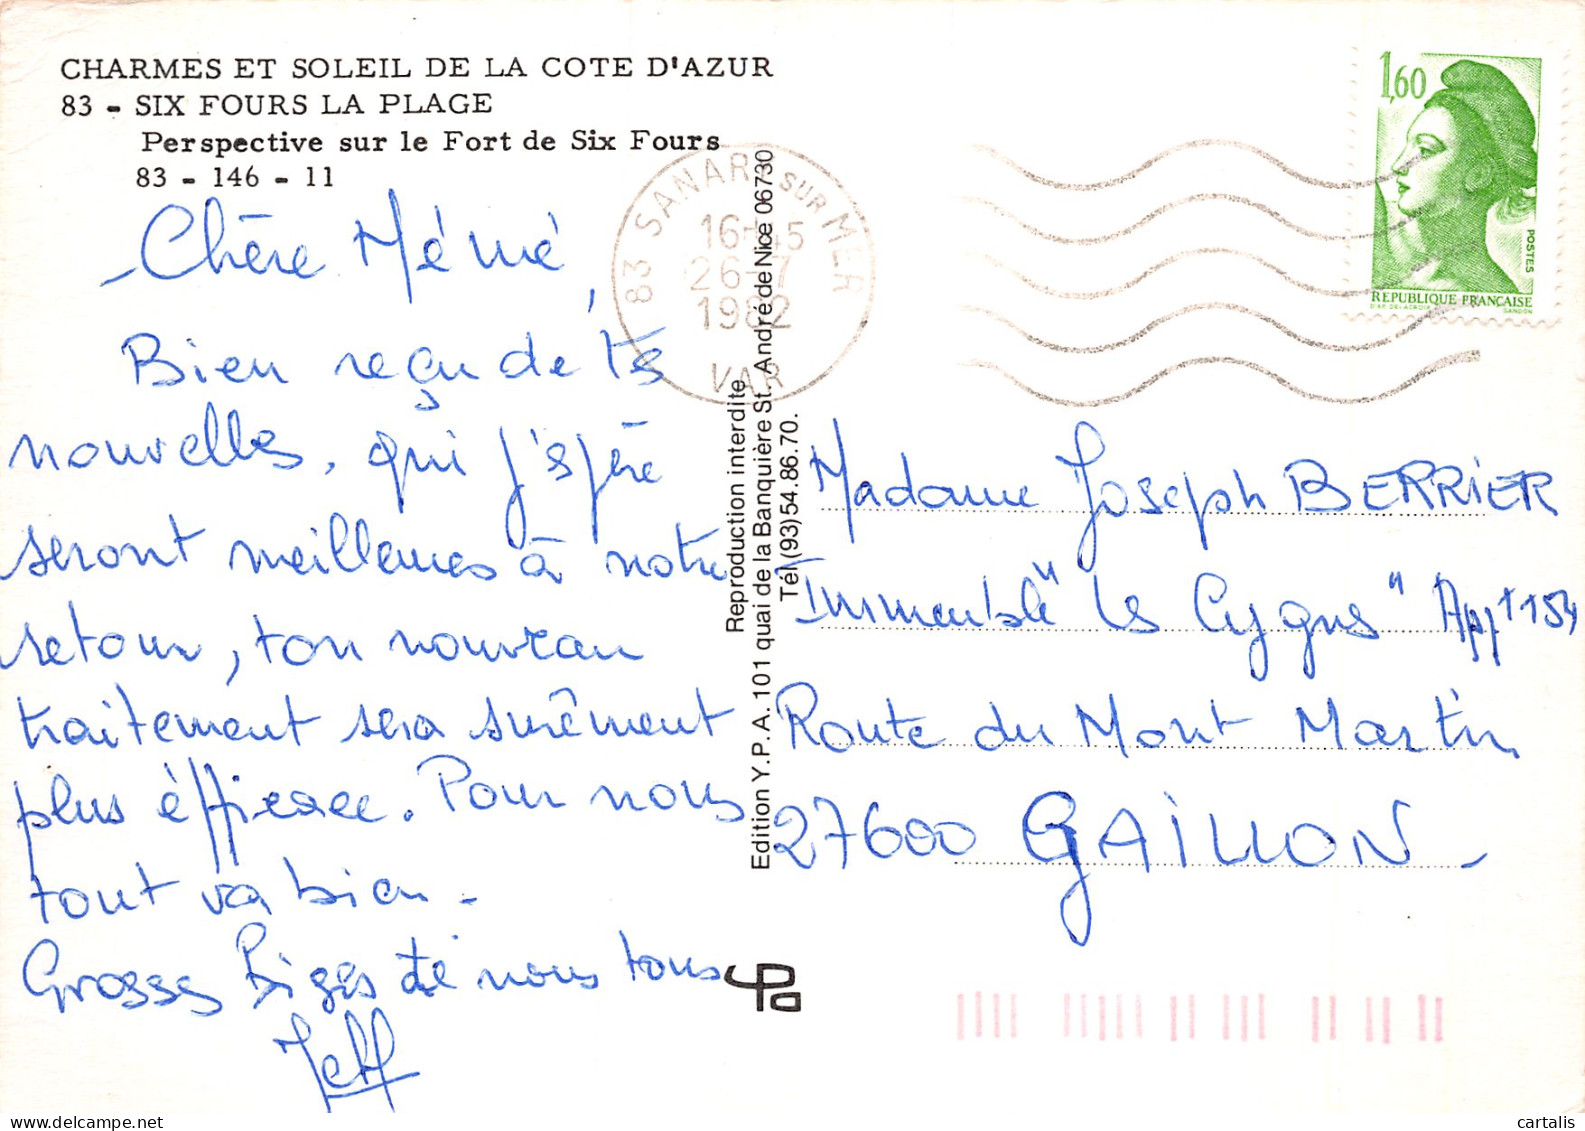 CHARMES ET SOLEIL DE LA COTE D'AZUR
83 - SIX FOURS LA PLAGE
Perspective sur le Fort de Six Fours
83 - 146 - 11
Chère Mémé,
Bien reçu de tes
nouvelles, qui j'espère
seront meilleures à notre
retour, ton nouveau
traitement sera surêment
plus éfficace. Pour nous
tout va bien -
Grosses Bises de nous tous
Jeff
83 SANARY SUR MER
16-45
26-7
1982
VAR
Reproduction interdite
Edition Y.P.A. 101 quai de la Banquière St. André de Nice 06730
Tél.(93)54.86.70.
1,60
POSTES
REPUBLIQUE FRANÇAISE
D'AP. DELACROIX GANDON
Madame Joseph BERRIER
Immeuble "les Cygnes" Appt 154
Route du Mont Martin
27600 GAILLON -
YPA
delcampe.net
cartalis